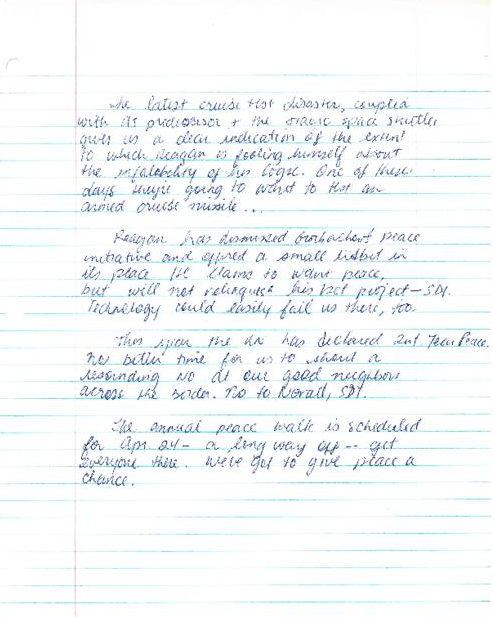 The latest cruise test disaster, coupled
with its predecessor + the tragic space shuttle
gives us a clear indication of the extent
to which Reagan is fooling himself about
the infalability of his logic. One of these
days they're going to want to test an
armed cruise missile...
Reagan has dismissed Gorbachev's peace
initiative and offered a small tidbit in
its place. He claims to want peace,
but will not relinquish his pet project - SDI.
Technology could easily fail us there, too.
This year the UN has declared Int. Year Peace.
No better time for us to shout a
resounding NO at our good neighbors
across the border. No to Norad, SDI.
The annual peace walk is scheduled
for Apr. 24 - a long way off -- get
everyone there. We've got to give peace a
chance.